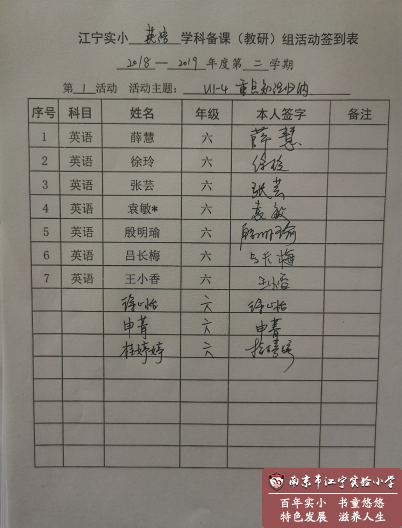 江宁实小 英语 学科备课（教研）组活动签到表
2018—2019 年度第 二 学期
第 1 活动 活动主题： U1-4 重点知识归纳
序号 科目 姓名 年级 本人签字 备注
1 英语 薛慧 六 薛慧
2 英语 徐玲 六 徐玲
3 英语 张芸 六 张芸
4 英语 袁敏* 六 袁敏
5 英语 殷明瑜 六 殷明瑜
6 英语 吕长梅 六 吕长梅
7 英语 王小香 六 王小香
徐心怡 六 徐心怡
申菁 六 申菁
桂婷婷 六 桂婷婷
南京市江宁实验小学
百年实小 书童悠悠
特色发展 滋养人生